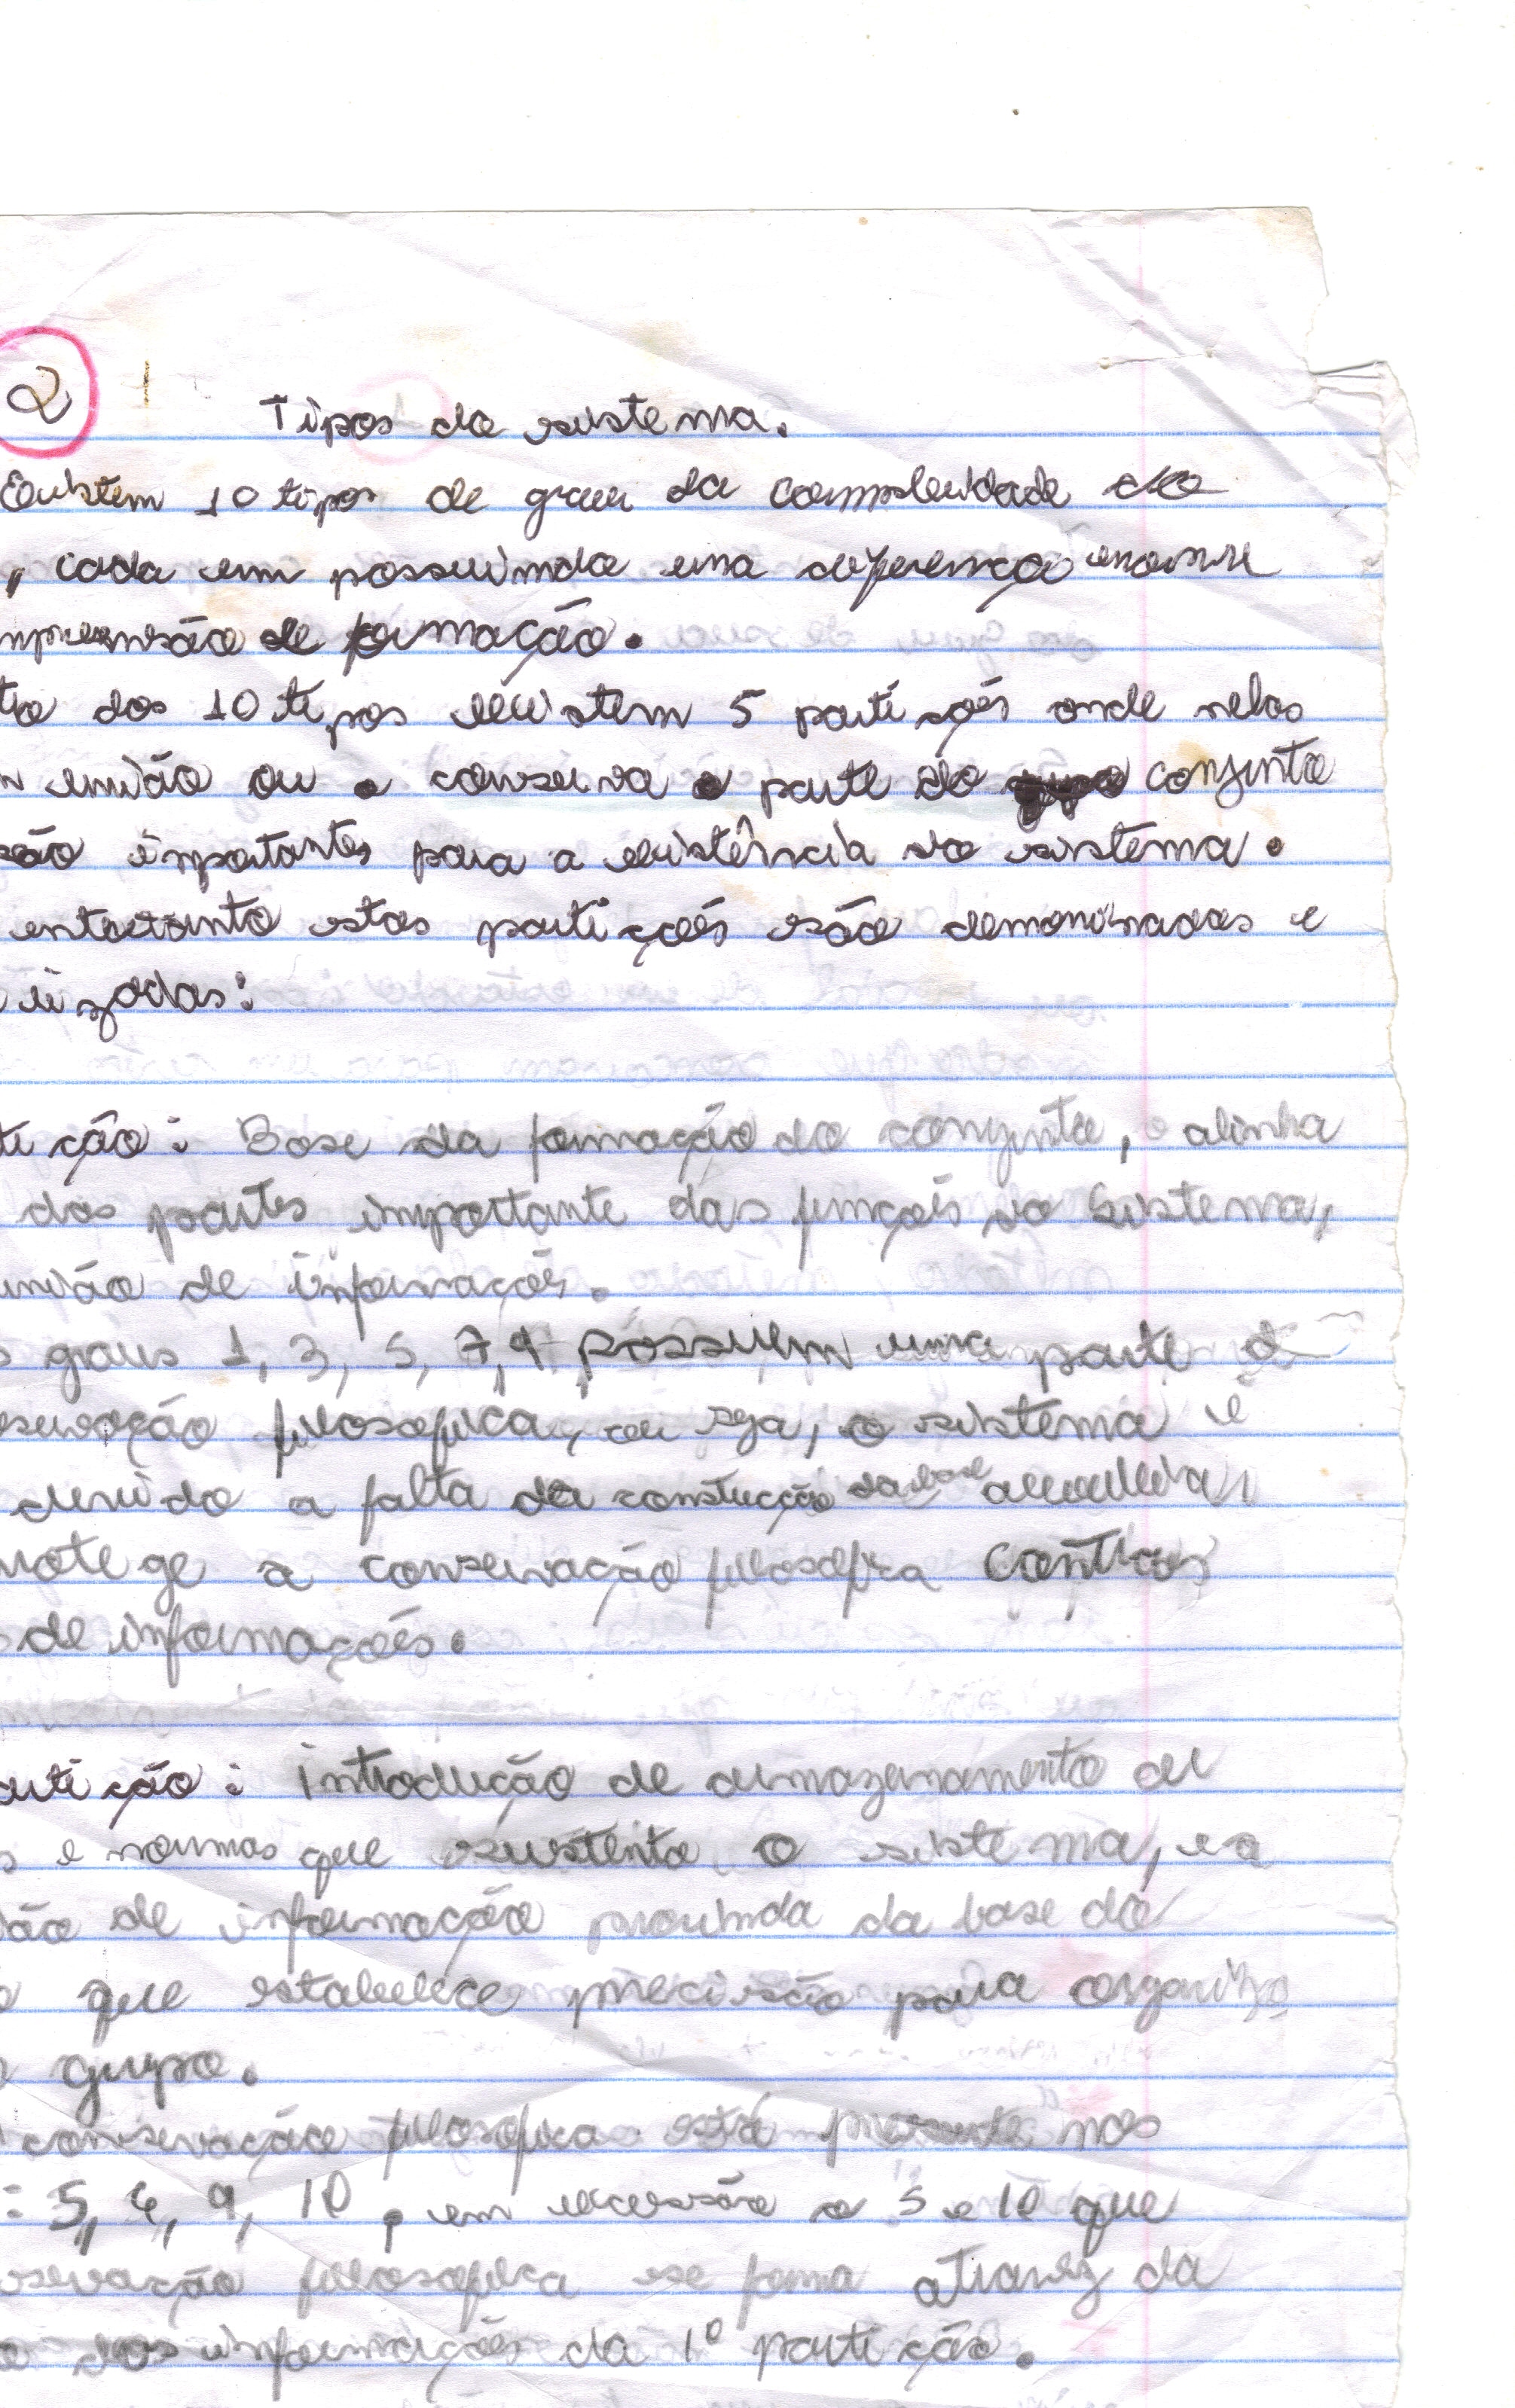 2
Tipos do sistema.
Existem 10 tipos de grau da complexidade do
, cada um possuindo uma diferença enorme
de formação.
dos 10 tipos existem 5 partiçoẽs onde nelas
união ou o conserva a parte do conjunto
são inportantes para a existência do sistema.
entretanto estas partiçoẽs são denominadas e
tição: Base da formação do conjunto, alinha
das partes importante das funçoẽs do sistema,
união de informaçoẽs.
graus 1, 3, 5, 7, 9 possuem uma parte d
servação filosofica, ou seja, o sistema é
devido a falta da construção da base
rotege a conservação filosofica contras
de informaçoẽs.
artição: introdução de armazenamento de
s e normas que sustenta o sistema, e a
são de informação provinda da base do
que estabelece precisão para organiza
grupo.
conservação filosofica está presente nos
: 5, 6, 9, 10, em excessão o 5 e 10 que
servação filosofica se forma atravez da
das informaçoẽs da 1º partição.